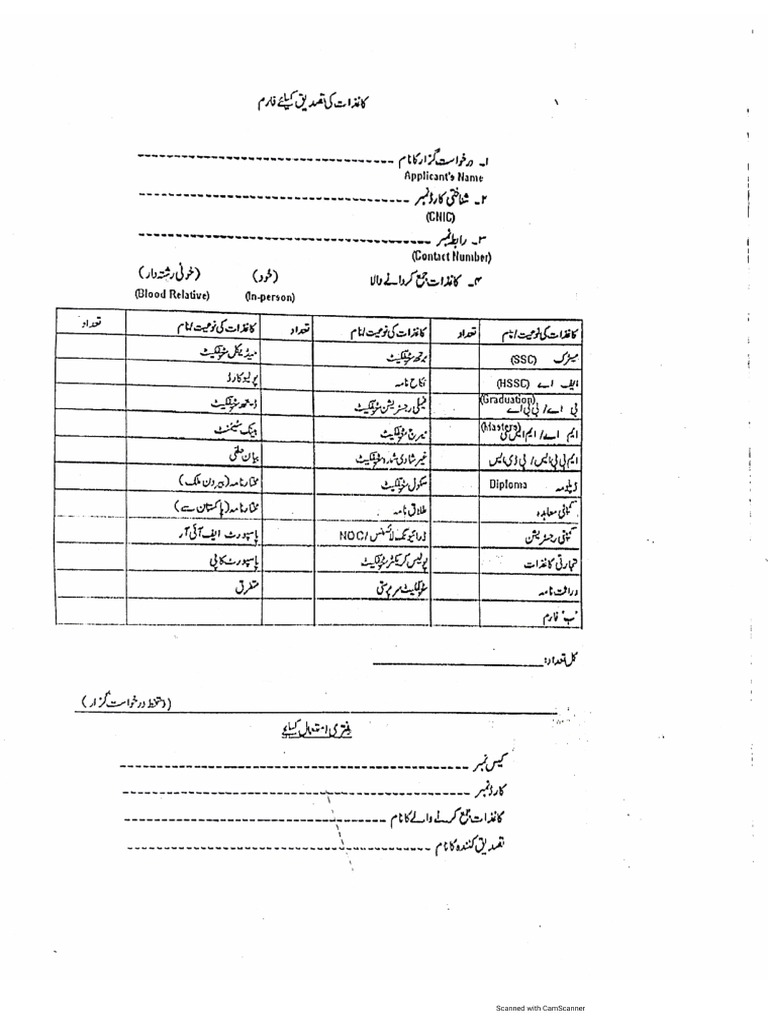 کاغذات کی تصدیق کیلئے فارم
۱
۱۔ درخواست گزار کا نام
Applicant's Name
۲۔ شناختی کارڈ نمبر
(CNIC)
۳۔ رابطہ نمبر
(Contact Number)
۴۔ کاغذات جمع کروانے والا (خود) (خونی رشتہ دار)
(In-person) (Blood Relative)
کاغذات کی نوعیت/نام تعداد کاغذات کی نوعیت/نام تعداد کاغذات کی نوعیت/نام تعداد
میٹرک (SSC) برتھ سرٹیفکیٹ میڈیکل سرٹیفکیٹ
ایف اے (HSSC) نکاح نامہ پولیو کارڈ
(Graduation)
بی اے/بی بی اے فیملی رجسٹریشن سرٹیفکیٹ ڈیتھ سرٹیفکیٹ
(Masters)
ایم اے/ایم ایس سی میرج سرٹیفکیٹ بینک سٹیٹمنٹ
ایم بی بی ایس/بی ڈی ایس غیر شادی شدہ سرٹیفکیٹ بیان حلفی
ڈپلومہ Diploma سکول سرٹیفکیٹ مختار نامہ (بیرون ملک)
کمپنی معاہدہ طلاق نامہ مختار نامہ (پاکستان سے)
کمپنی رجسٹریشن ڈرائیونگ لائسنس/NOC پاسپورٹ ایف آئی آر
تجارتی کاغذات پولیس کریکٹر سرٹیفکیٹ پاسپورٹ کاپی
وراثت نامہ سرٹیفکیٹ سرپرستی متفرق
"ب" فارم
کل تعداد:
(دستخط درخواست گزار)
دفتری استعمال کیلئے
کیس نمبر
کارڈ نمبر
کاغذات جمع کرنے والے کا نام
تصدیق کنندہ کا نام
Scanned with CamScanner